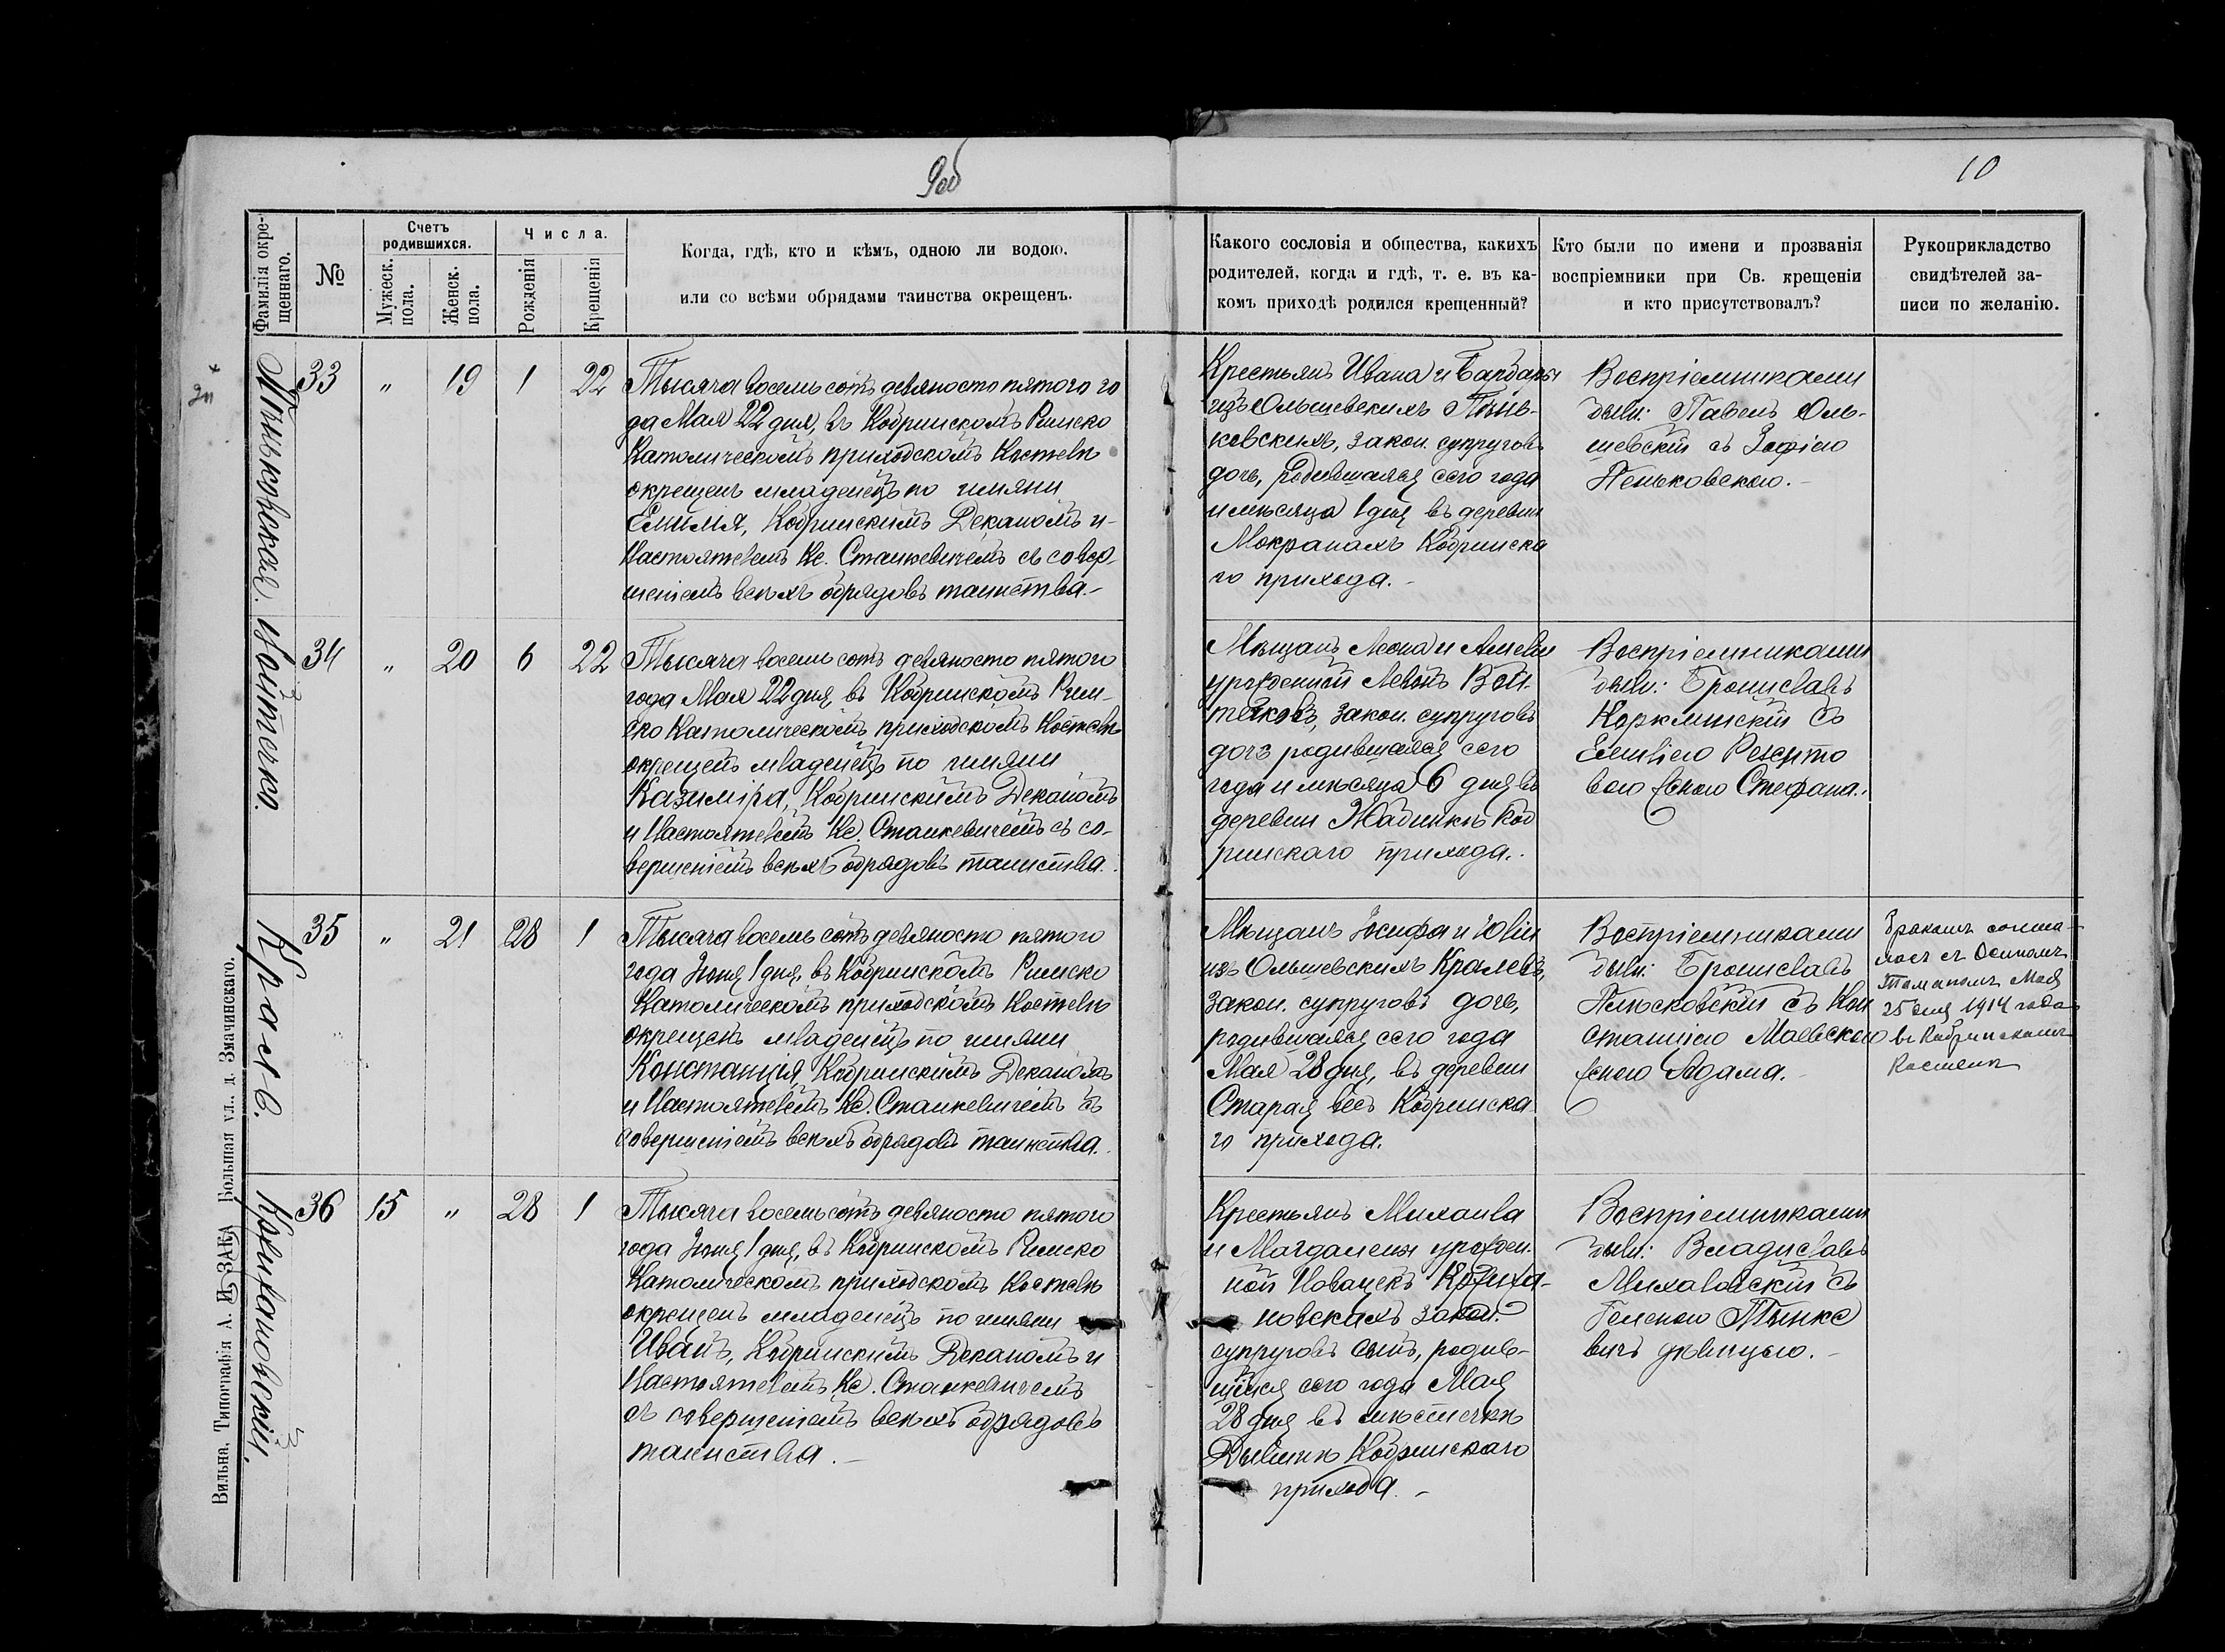 9об
10
Фамилія окре-
щеннаго.
№
Счетъ
родившихся.
Мужеск.
пола.
Женск.
пола.
Числа.
Рожденія
Крещенія
Когда, гдѣ, кто и кѣмъ, одною ли водою.
или со всѣми обрядами таинства окрещенъ.
Какого сословія и общества, какихъ
родителей, когда и гдѣ, т. е. въ ка-
комъ приходѣ родился крещенный?
Кто были по имени и прозванія
воспріемники при Св. крещеніи
и кто присутствовалъ?
Рукоприкладство
свидѣтелей за-
писи по желанію.
Пѣньковская.
33 " 19 1 22
Тысяча восемь сотъ девяносто пятого го
да Мая 22 дня, въ Кобринскомъ Римско
Католическомъ приходскомъ Костелѣ
окрещенъ младенецъ по имяни
Емилія, Кобринскимъ Деканомъ и-
Настоятелемъ Кс. Станкевичемъ съ совер-
шеніемъ всѣхъ обрядовъ таинства.-
Крестьянъ Ивана и Барбары
изъ Ольшевскихъ Пѣнь-
ковскихъ, закон. супруговъ
дочь, родившаяся сего года
и мѣсяца 1 дня въ деревни
Мокранахъ Кобринска
го прихода.-
Воспріемниками
были: Павелъ Оль-
шевскій съ Зофіею
Пеньковскою.-
Войтеко.
34 " 20 6 22
Тысяча восемь сотъ девяносто пятого
года Мая 22 дня, въ Кобринскомъ Рим-
ско Католическомъ приходскомъ Костелѣ
окрещенъ младенецъ по имяни
Казиміра, Кобринскимъ Деканомъ
и Настоятелемъ Кс. Станкевичемъ съ со-
вершеніемъ всѣхъ обрядовъ таинства.
Мѣщанъ Леона и Анели
урожденной Левонъ Вой-
тековъ, закон. супруговъ
дочь родившаяся сего
года и мѣсяца 6 дня въ
деревни Жабинкѣ Коб
ринскаго прихода.
Воспріемниками
были: Брониславъ
Корклинскій съ
Емиліею
вою женою Стефана.
Кролъ.
35 " 21 28 1
Тысяча восемь сотъ девяносто пятого
года Іюня 1 дня, въ Кобринскомъ Римско
Католическомъ приходскомъ Костелѣ
окрещенъ младенецъ по имяни
Констанція, Кобринскимъ Деканомъ
и Настоятелемъ Кс. Станкевичемъ съ
совершеніемъ всѣхъ обрядовъ таинства.
Мѣщанъ Іосифа и Юліи
изъ Ольшевскихъ Кролевъ,
закон. супруговъ дочь,
родившаяся сего года
Мая 28 дня, въ деревни
Старая весь Кобринска
го прихода.
Воспріемниками
были: Брониславъ
съ Кон
станціею Маевскою
женою Адама.
Бракомъ сочета-
лась съ Осипомъ
Мая
25 дня 1914 года
въ Кобринскомъ
Костелѣ
Кржижановскій.
36 15 " 28 1
Тысяча восемь сотъ девяносто пятого
года Іюня 1 дня, въ Кобринскомъ Римско
Католическомъ приходскомъ Костелѣ
окрещенъ младенецъ по имяни
Иванъ, Кобринскимъ Деканомъ и
Настоятелемъ Кс. Станкевичемъ
съ совершеніемъ всѣхъ обрядовъ
таинства.-
Крестьянъ Михаила
и Магдалены урожден.
ной Новацекъ Кржижа-
новскихъ закон.
супруговъ сынъ, родив-
шійся сего года Мая
28 дня въ мѣстечкѣ
Дывинѣ Кобринскаго
прихода.-
Воспріемниками
были: Владиславъ
Михаловскій съ
Геленою Тынке
вичъ дѣвицею.-
Вильна, Типографія А. И. ЗАКА Большая ул., д. Змачинскаго.